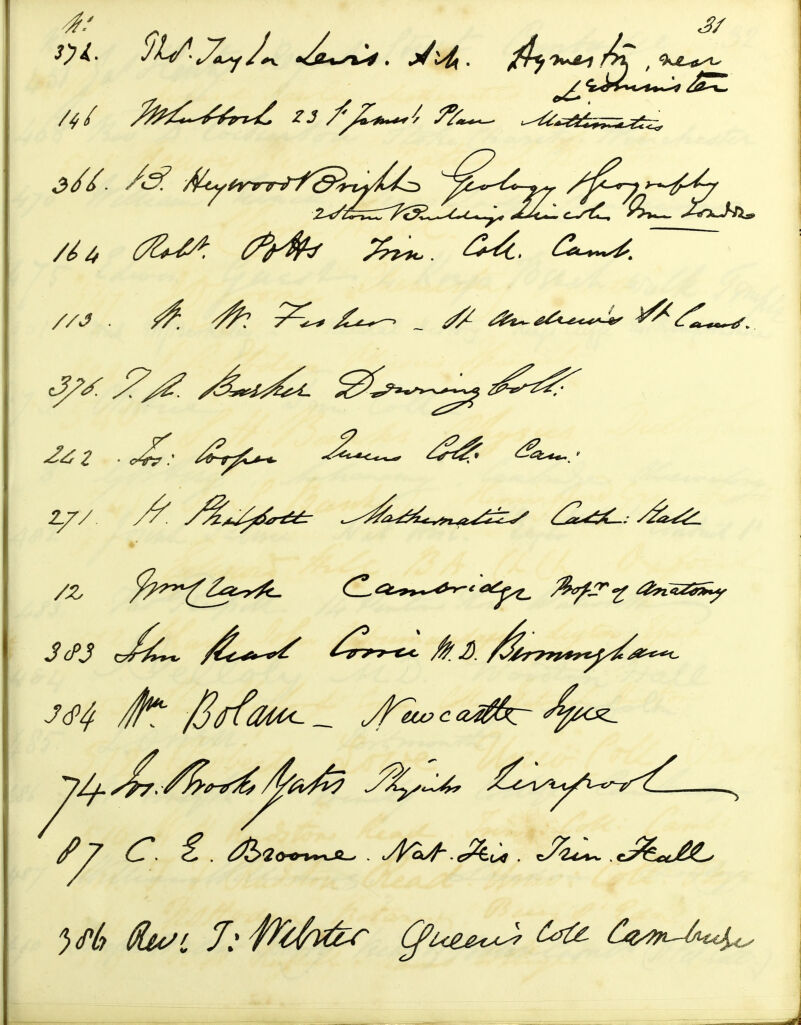 No. 31
372. Thos. Taylor Lewis. A.M. Aymestry, near
Leominster
146 J W Lubbock 23 St James's Place Mathematics
366. B. Heywood Bright Geology & Geography
2 Stone Buildings Lincolns Inn London
164 Robt. Potts Trin. Coll. Camb.
113. W. W. Fisher - St Andrew's St Camb.
376. T. A. Barker Downing Coll:
242 Jos: Cooper Queens Coll: Cam:
271 H. Philpott Mathematics Cath: Hall
12 Wm Clark Cambridge Profr of Anatomy
383 John Read Corrie M.D. Birmingham
384 Wm. Bolam - Newcastle Tyne
74 Jos. Brooks Yates Physicks Liverpool
87 C. E. Broome. Nat. His. Trin. Hall
386 Revd. T: Webster Queen's Coll Cambridge